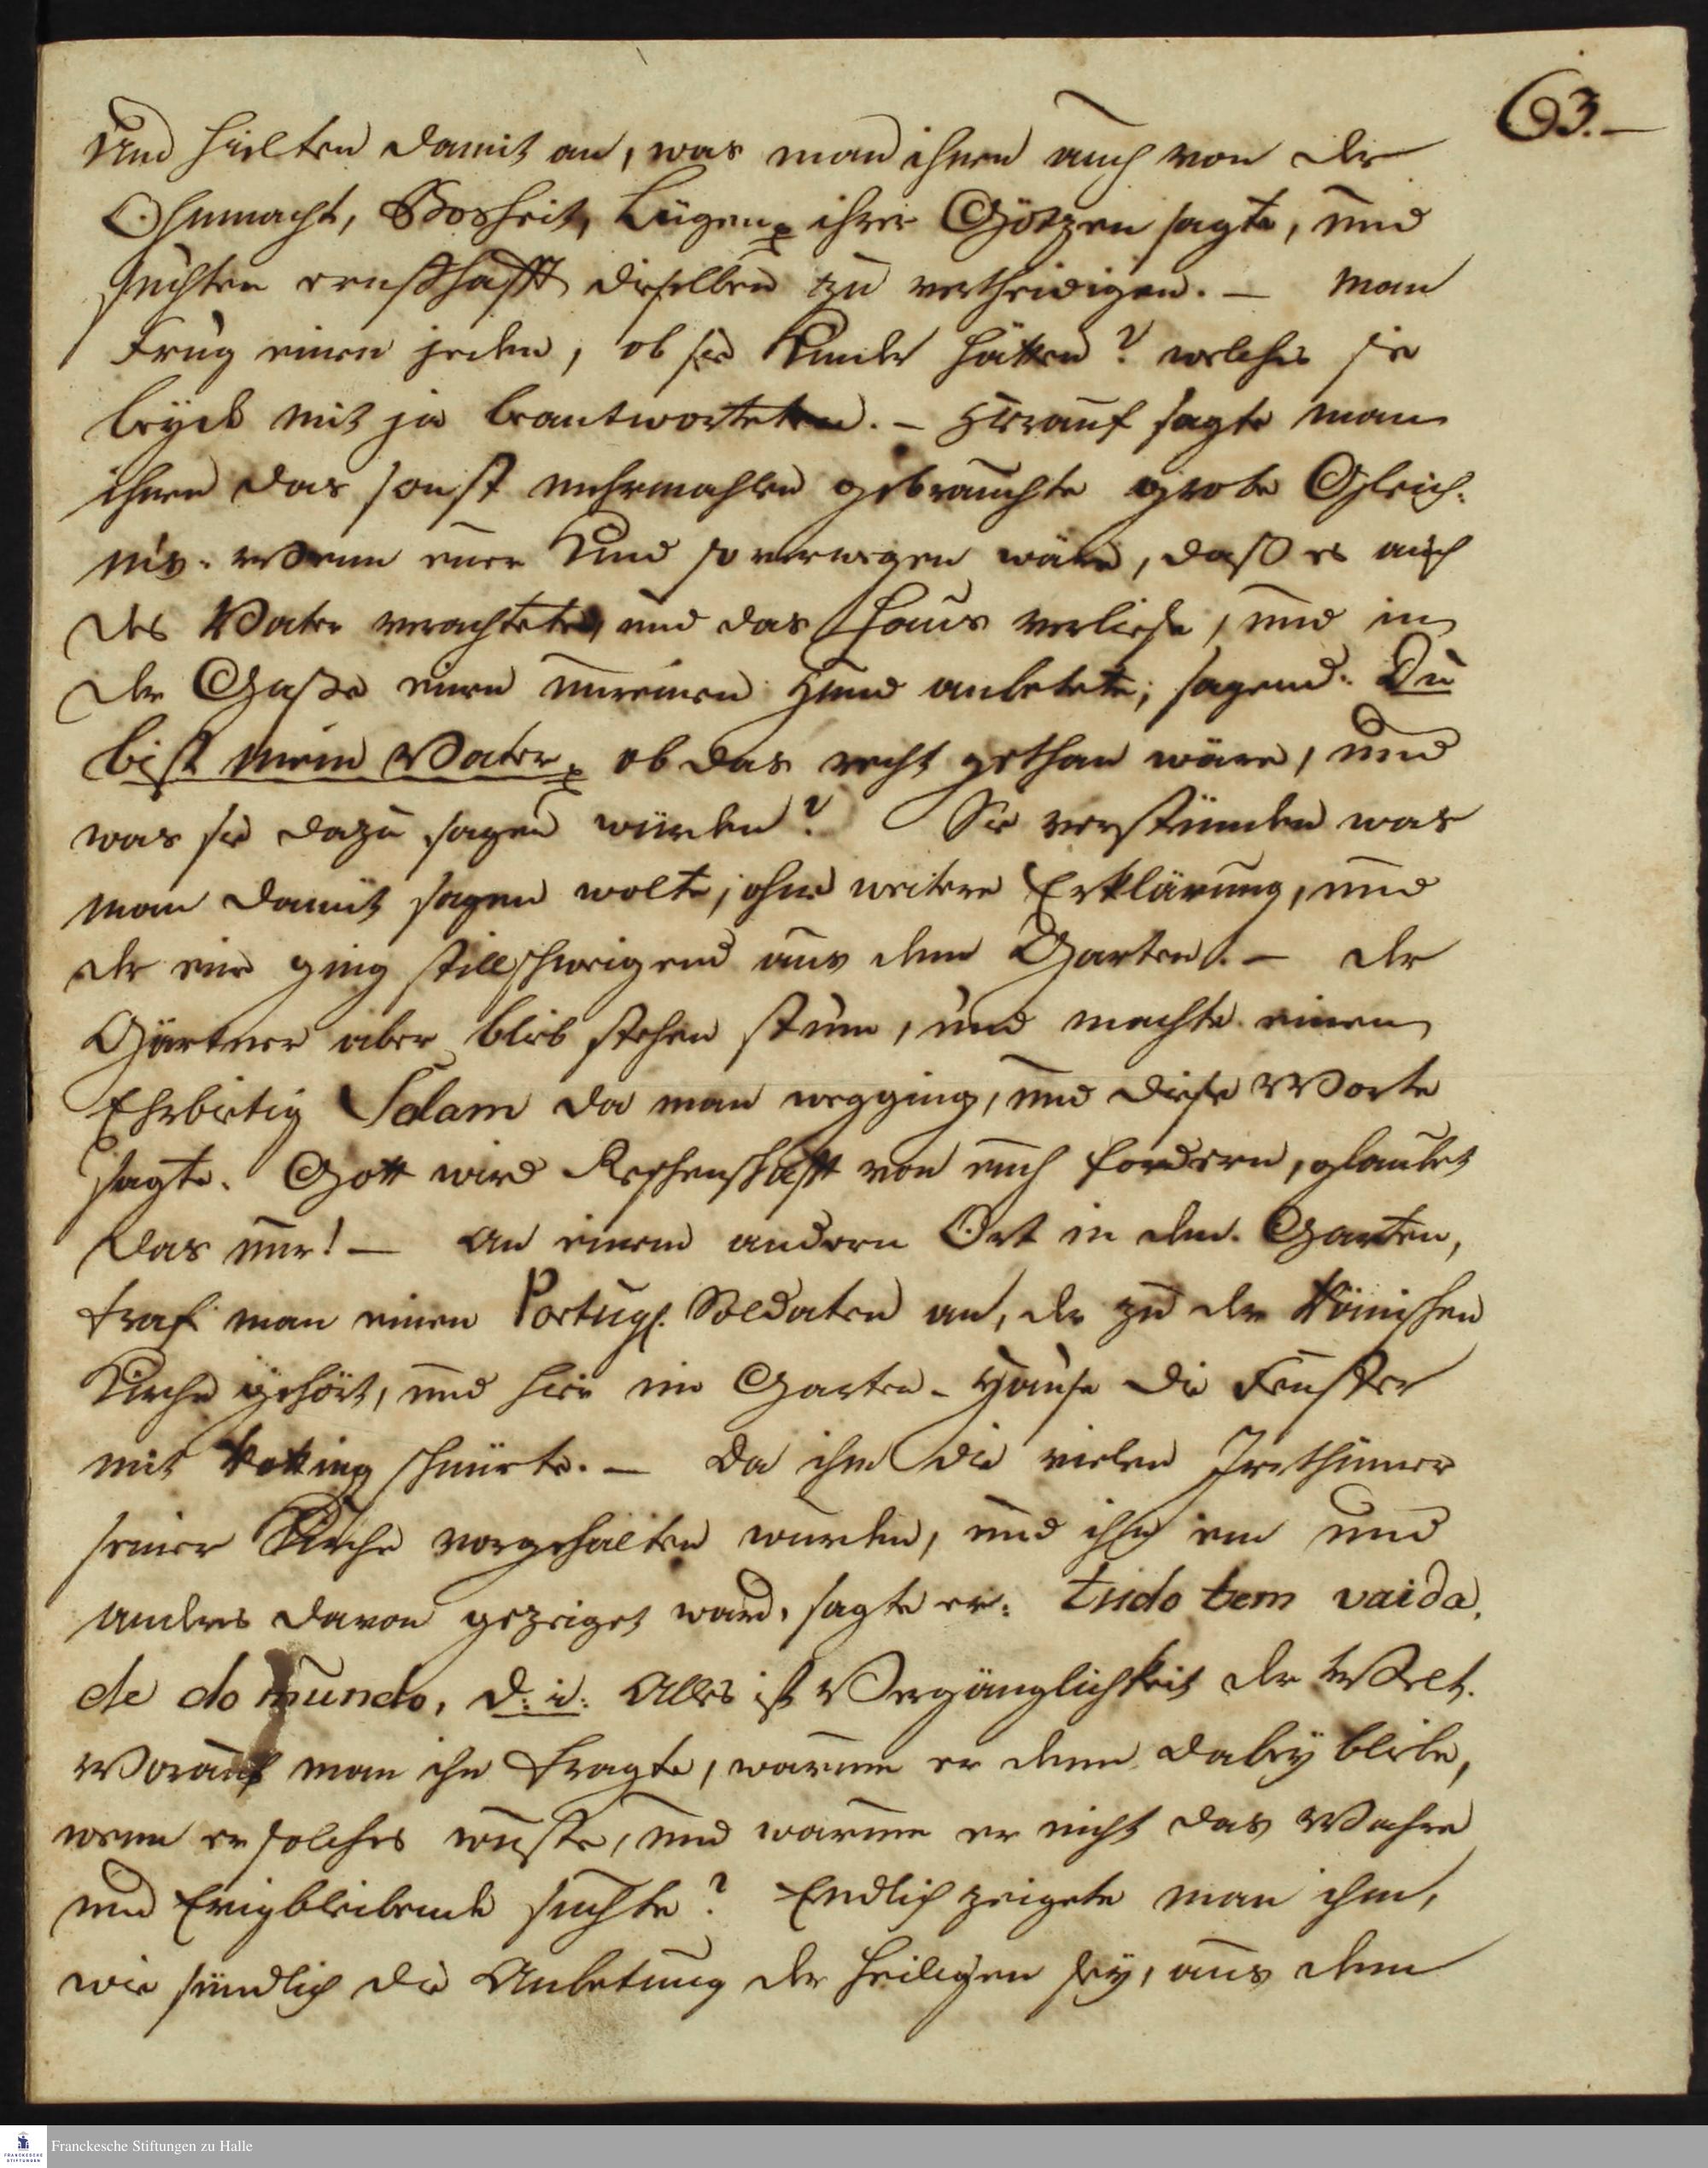 63.
und hielten damit an, was man ihnen auch von der
Ohnmacht, Bosheit, Lügen ihrer Götzen sagte, und
suchten ernsthafft dieselben zu vertheidigen. — Man
frug einen jeden, ob sie Kinder hätten? welches sie
beyde mit ja beantworteten. — Hierauf sagte man
ihnen das sonst mehrmahlen gebrauchte grobe Gleich:
nis: Wenn euer Kind so verwegen wäre, daß es auch
des Vater verachtete, und das Haus verließe, und in
der Gaße einen unreinen Hund anbetete, sagend: Du
bist mein Vater, ob das recht gethan wäre, und
was sie dazu sagen würden? Sie verstunden was
man damit sagen wolte, ohne weitere Erklärung, und
der eine ging stillschweigend aus dem Garten. — der
Gärtner aber blieb stehen stum, und machte einen
Ehrbietig Salam da man wegging, und diese Worte
sagte: Gott wird Rechenschafft von euch fordern, glaubet
das nur! — An einem andern Ort in dem Garten,
traf man einen Portugs. Soldaten an, der zu der Römischen
Kirche gehört, und hier im Garten-Hause die Fenster
mit Ratting schnürte. — Da ihm die vielen Irrthümer
seiner Kirche vorgehalten wurden, und ihm ein und
anders davon gezeiget ward, sagte er: tudo tem vaida.
de do mundo, d. i. Alles ist Vergänglichkeit der Welt.
Worauf man ihn fragte, warum er denn dabey bliebe,
wenn er solches wuste, und warum er nicht das Wahre
und Ewigbleibende suchte? Endlich zeigete man ihm,
wie sündlich die Anbetung der Heiligen sey, aus dem
Franckesche Stiftungen zu Halle
FRANCKESCHE
STIFTUNGEN